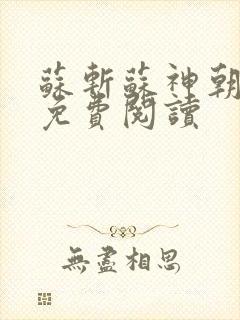 蘇斬蘇神朝
免費閱讀
無盡相思